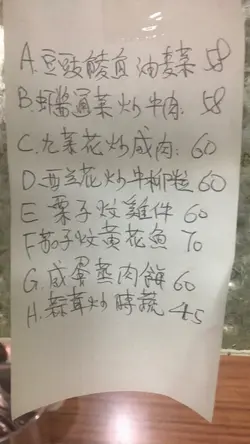 A.豆豉鯪魚油麦菜 58
B.蝦醬通菜炒牛肉. 58
C.九菜花炒咸肉: 60
D.西兰花炒牛柳粒 60
E 栗子炆雞件 60
F茄子炆黄花魚 70
G.咸蛋蒸肉餅 60
H.蒜茸炒時蔬 45